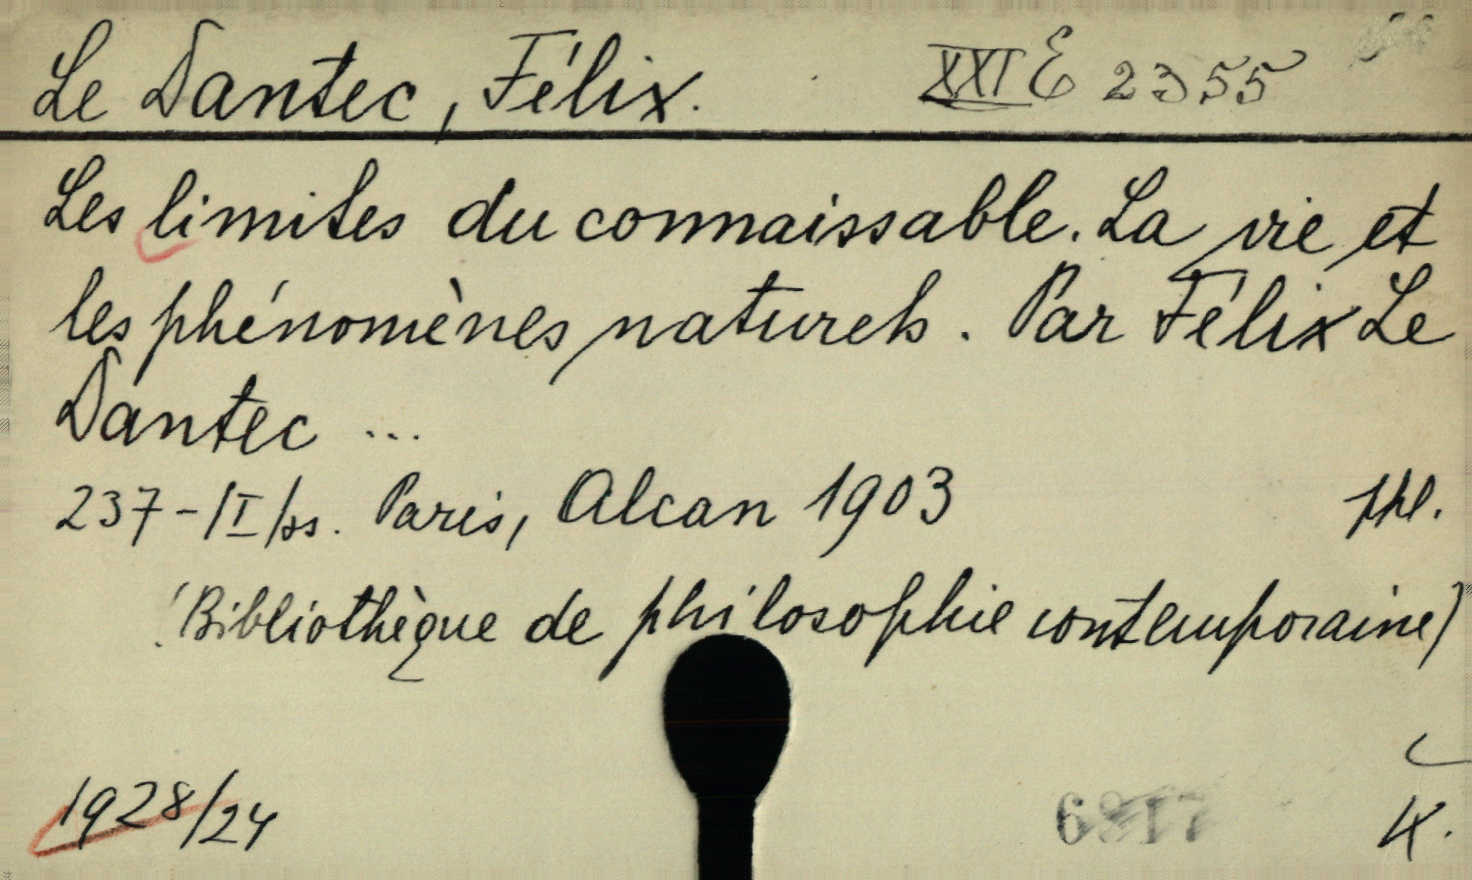 Le Dantec, Félix. XXI E 2355
Les limites du connaissable. La vie et
les phénomènes naturels. Par Félix Le
Dantec ...
237-/I/ss. Paris, Alcan 1903 phl.
(Bibliothèque de philosophie contemporaine)
1928/24 6817 K.